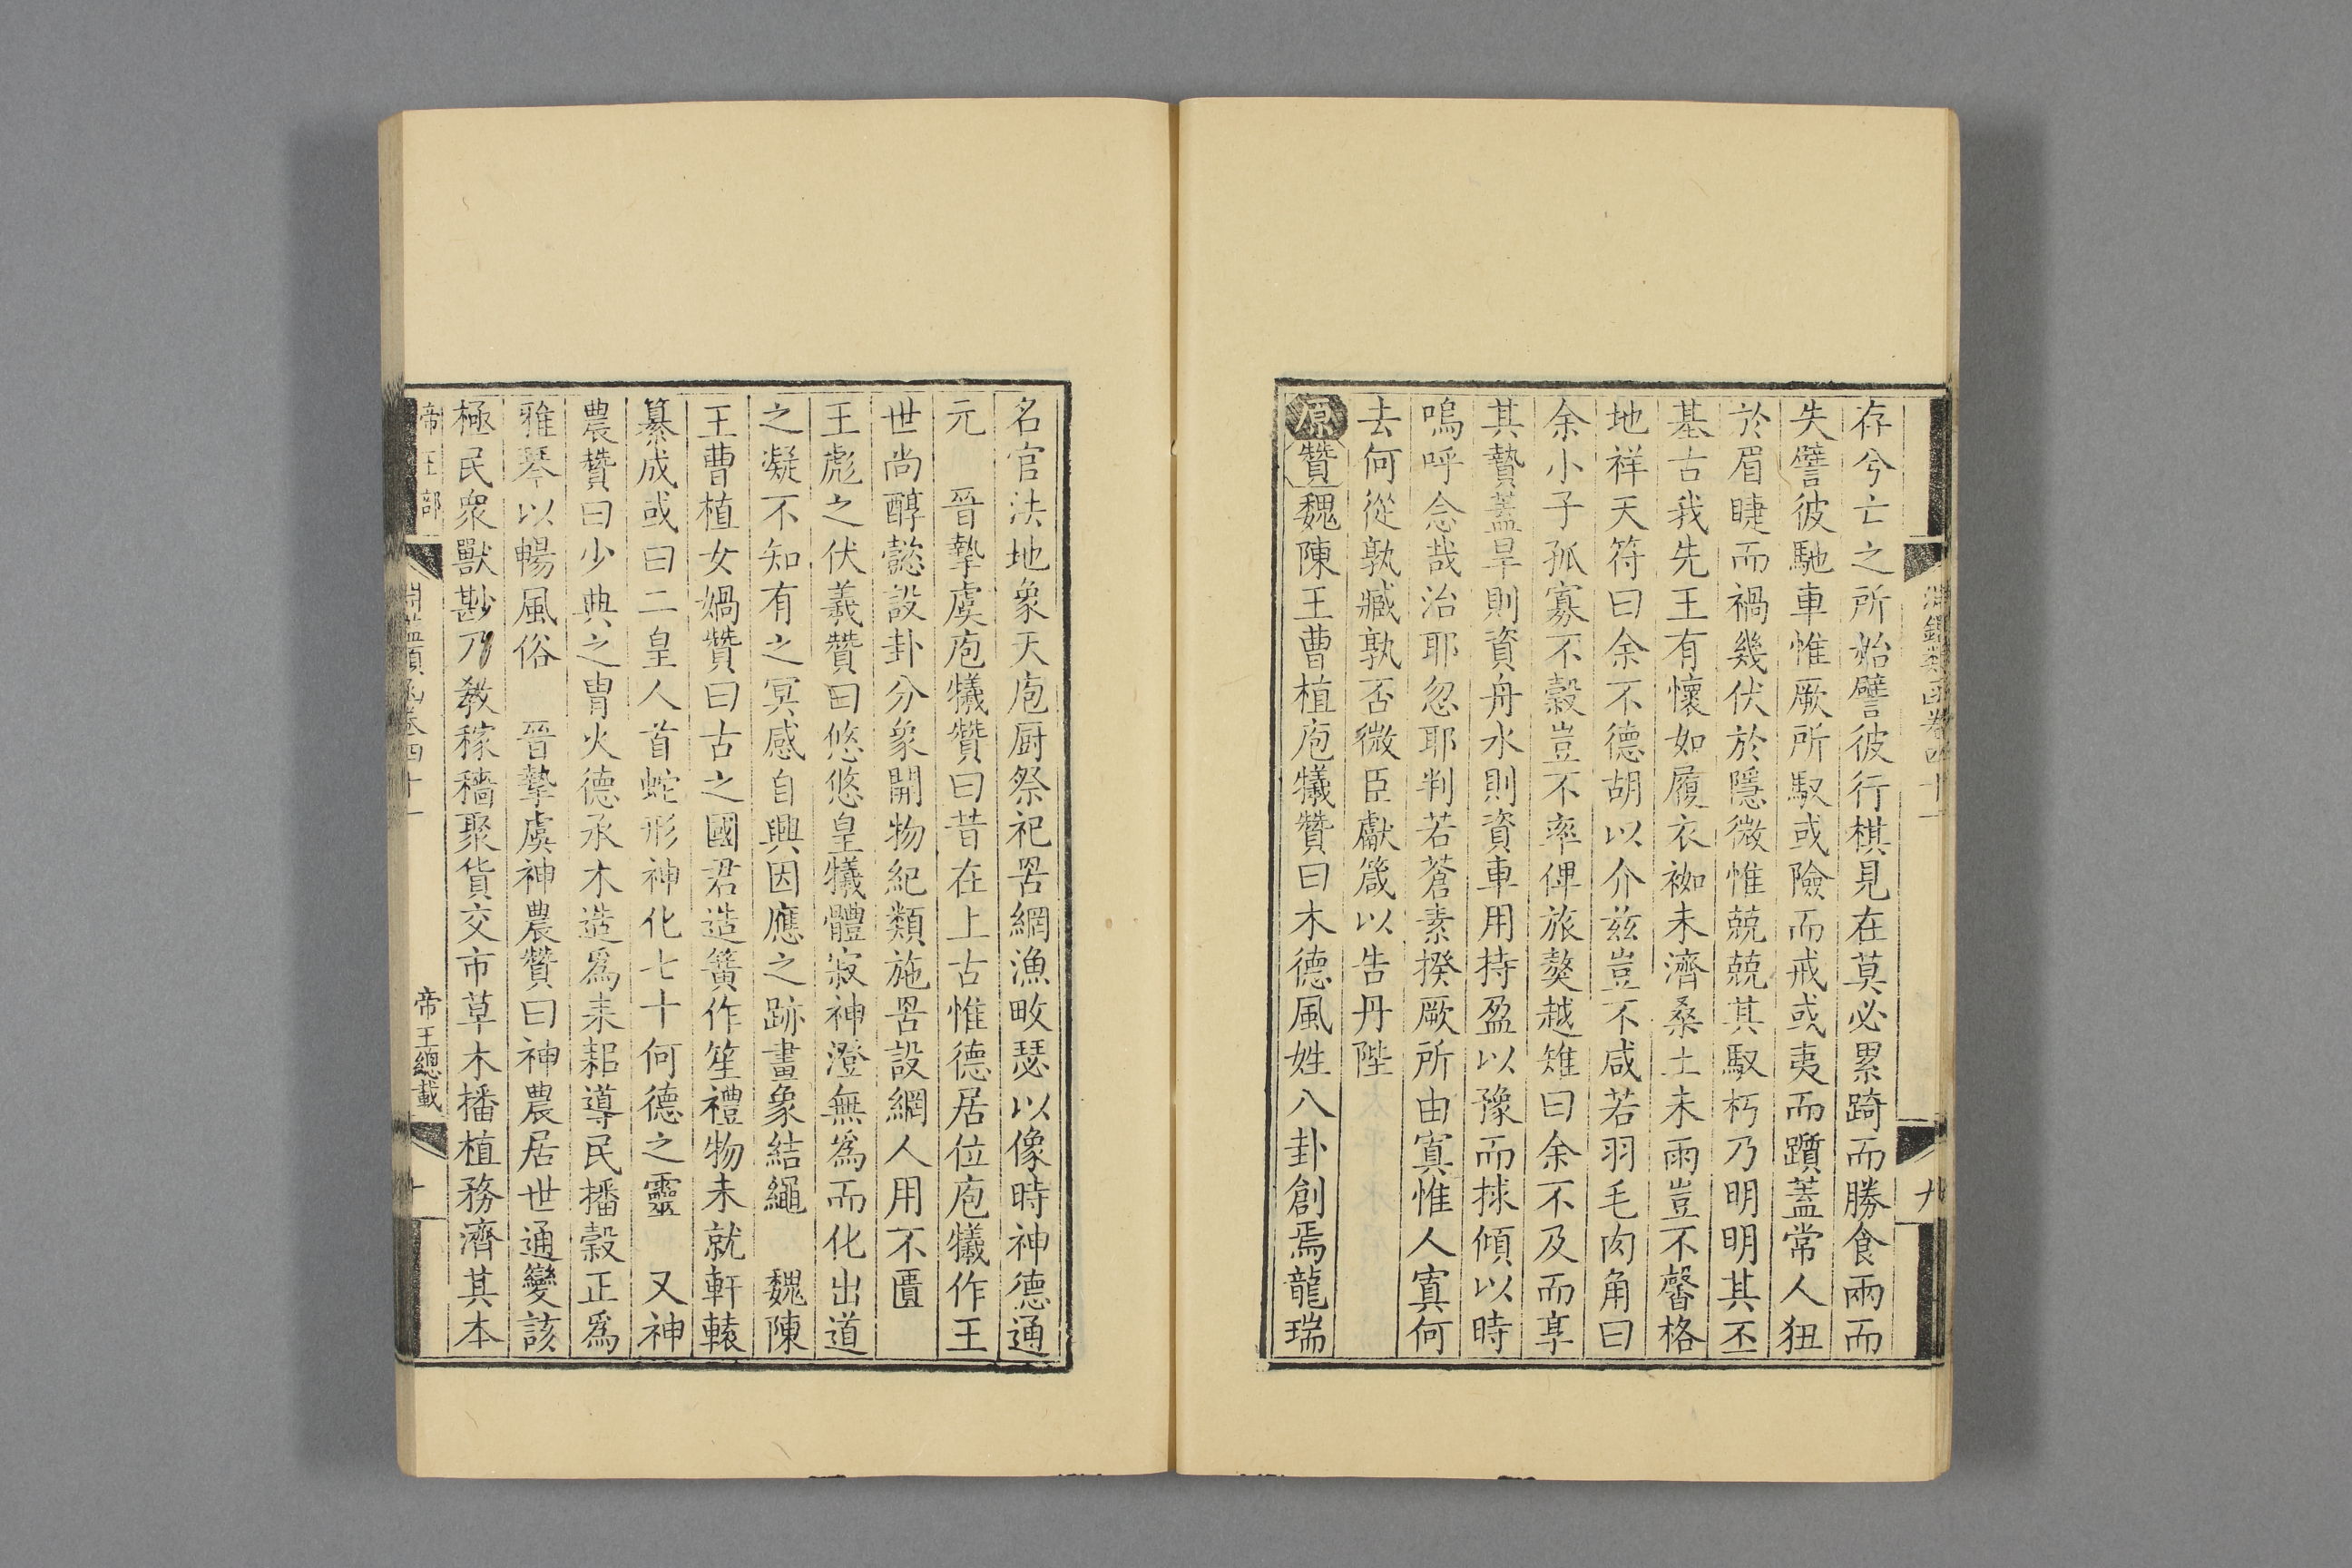 淵鑑類函卷四十一
九
存兮亡之所始譬彼行棋見在莫必累踦而勝食兩而
失譬彼馳車惟厥所馭或險而戒或夷而躓蓋常人狃
於眉睫而禍幾伏於隱微惟兢兢其馭朽乃明明其丕
基古我先王有懷如履衣袽未濟桑土未雨豈不罄格
地祥天符曰余不德胡以介茲豈不咸若羽毛肉角曰
余小子孤寡不穀豈不率俾旅獒越雉曰余不及而享
其贄蓋旱則資舟水則資車用持盈以豫而捄傾以時
嗚呼念哉治耶忽耶判若蒼素揆厥所由寘惟人寘何
去何從孰臧孰否微臣獻箴以告丹陛
原贊魏陳王曹植庖犧贊曰木德風姓八卦創焉龍瑞
名官法地象天庖厨祭祀罟網漁畋瑟以像時神德通
元　晉摯虞庖犧贊曰昔在上古惟德居位庖犧作王
世尚醇懿設卦分象開物紀類施罟設網人用不匱
王彪之伏羲贊曰悠悠皇犧體寂神澄無爲而化出道
之凝不知有之冥感自興因應之跡畫象結繩　魏陳
王曹植女媧贊曰古之國君造簧作笙禮物未就軒轅
纂成或曰二皇人首蛇形神化七十何德之靈　又神
農贊曰少典之胄火德承木造爲耒耜導民播穀正爲
雅琴以暢風俗　晉摯虞神農贊曰神農居世通變該
極民衆獸尠乃敎稼穡聚貨交市草木播植務濟其本
帝王部
淵鑑類函卷四十一
帝王總載
十